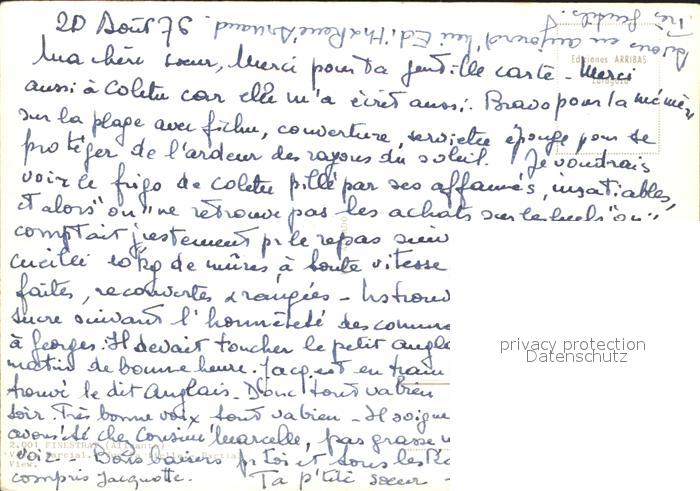 20 Août 76
Avons eu aujourd'hui Edith & René Arnaud.
Très gentils.
Ma chère sœur, Merci pour ta gentille carte - Merci
Ediciones ARRIBAS
Zaragoza
aussi à Colette car elle m'a écrit aussi. Bravo pour la mémère
sur la plage avec fichu, couverture, serviette éponge pour se
protéger de l'ardeur des rayons du soleil. Je voudrais
voir le frigo de Colette pillé par ses affamés, insatiables,
et alors "on" ne retrouve pas les achats sur lesquels "on"
comptait justement pr le repas suiv
cueilli 10 kg de mûres à toute vitesse
faites, recouvertes & rangées -
sucre suivant l'honnêteté des comme
à Georges. Il devait toucher le petit angla
matin de bonne heure. Jacq. est en train
trouvé le dit Anglais. Donc tout va bien
soir. Très bonne voix tout va bien - Il soigne
avons été chez Cousine Marcelle, pas grasse
2.001 FINESTRAT (Alicante)
voir - Bons baisers pr toi et tous les
View.
compris Jacquotte. Ta p'tite sœur -
privacy protection
Datenschutz